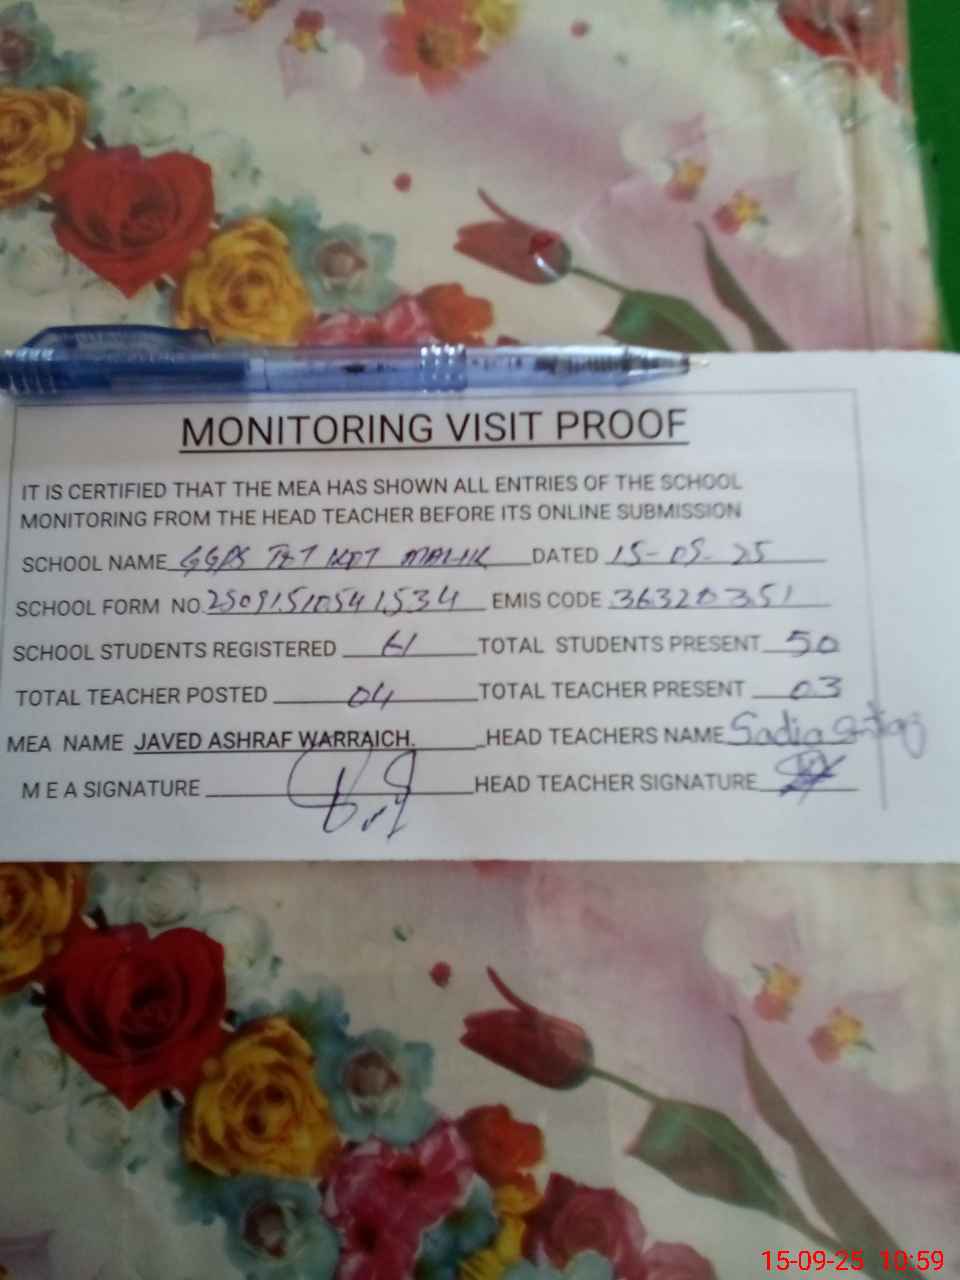 MONITORING VISIT PROOF
IT IS CERTIFIED THAT THE MEA HAS SHOWN ALL ENTRIES OF THE SCHOOL
MONITORING FROM THE HEAD TEACHER BEFORE ITS ONLINE SUBMISSION
SCHOOL NAME GGPS KOT MALIK DATED 15-09-25
SCHOOL FORM NO. 2509151054 1534 EMIS CODE 36320351
SCHOOL STUDENTS REGISTERED 61 TOTAL STUDENTS PRESENT 50
TOTAL TEACHER POSTED 04 TOTAL TEACHER PRESENT 03
MEA NAME JAVED ASHRAF WARRAICH. HEAD TEACHERS NAME Sadia
M E A SIGNATURE HEAD TEACHER SIGNATURE
15-09-25 10:59